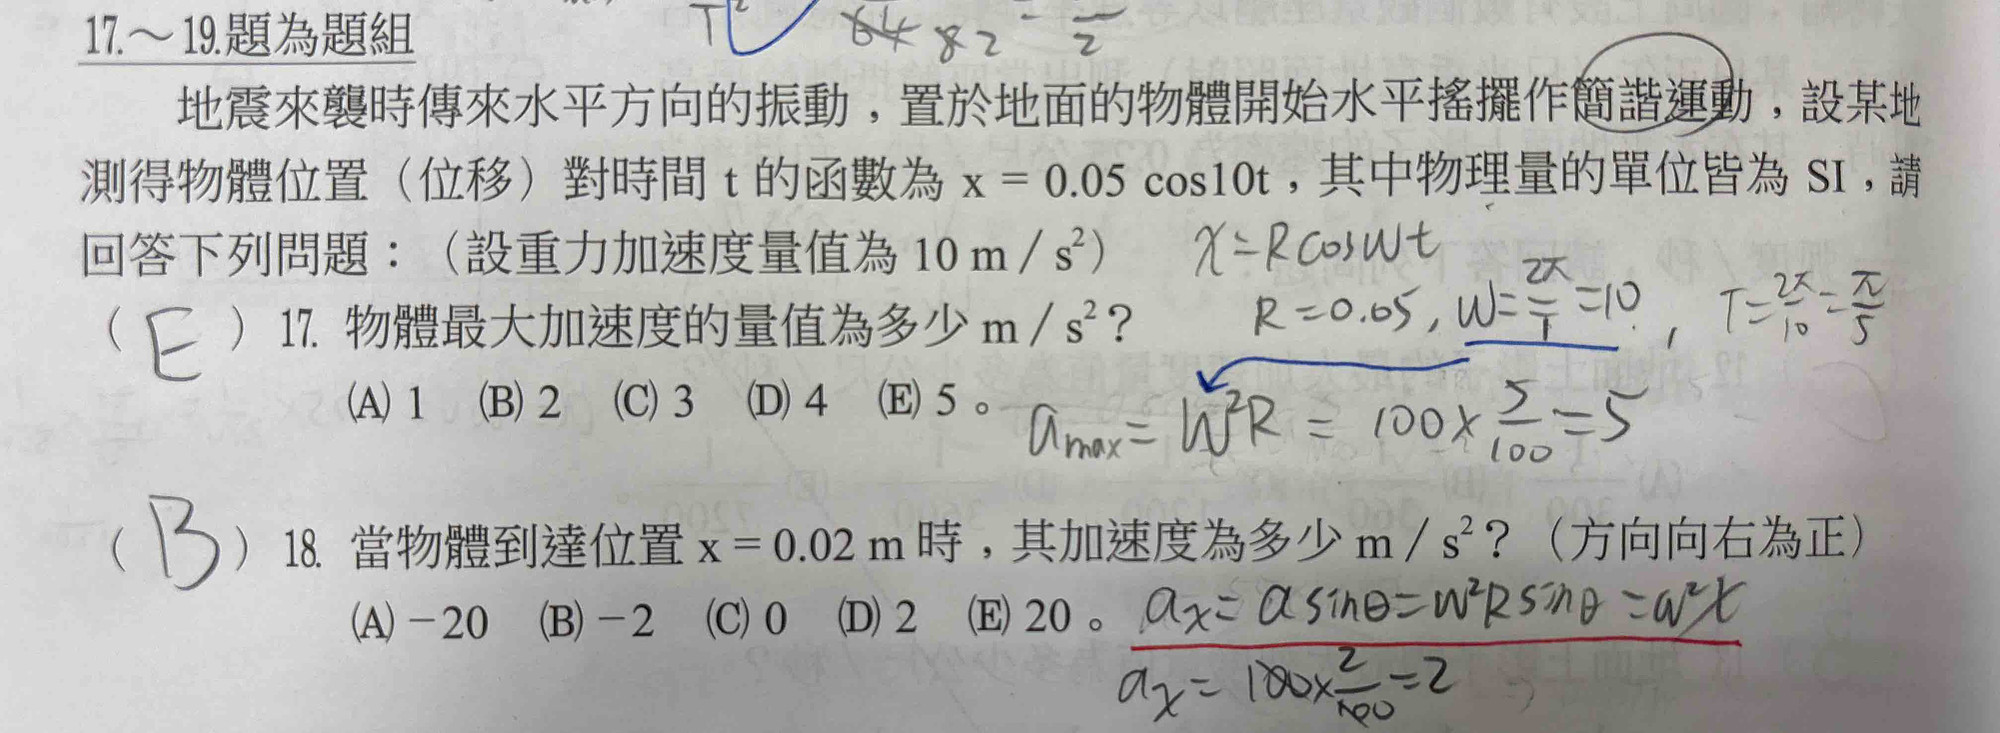 T²
64 82 2
17.～19.題為題組
地震來襲時傳來水平方向的振動，置於地面的物體開始水平搖擺作簡諧運動，設某地
測得物體位置（位移）對時間 t 的函數為 x = 0.05 cos10t，其中物理量的單位皆為 SI，請
回答下列問題：（設重力加速度量值為 10 m / s²） x = R cos wt
R = 0.05, w = 2π/T = 10, T = 2π/10 = π/5
（ E ）17. 物體最大加速度的量值為多少 m / s²？
(A) 1 (B) 2 (C) 3 (D) 4 (E) 5。 a max = w²R = 100 × 5/100 = 5
（ B ）18. 當物體到達位置 x = 0.02 m 時，其加速度為多少 m / s²？（方向向右為正）
(A) －20 (B) －2 (C) 0 (D) 2 (E) 20。 ax = a sinθ = w²R sinθ = w²x
ax = 100 × 2/100 = 2